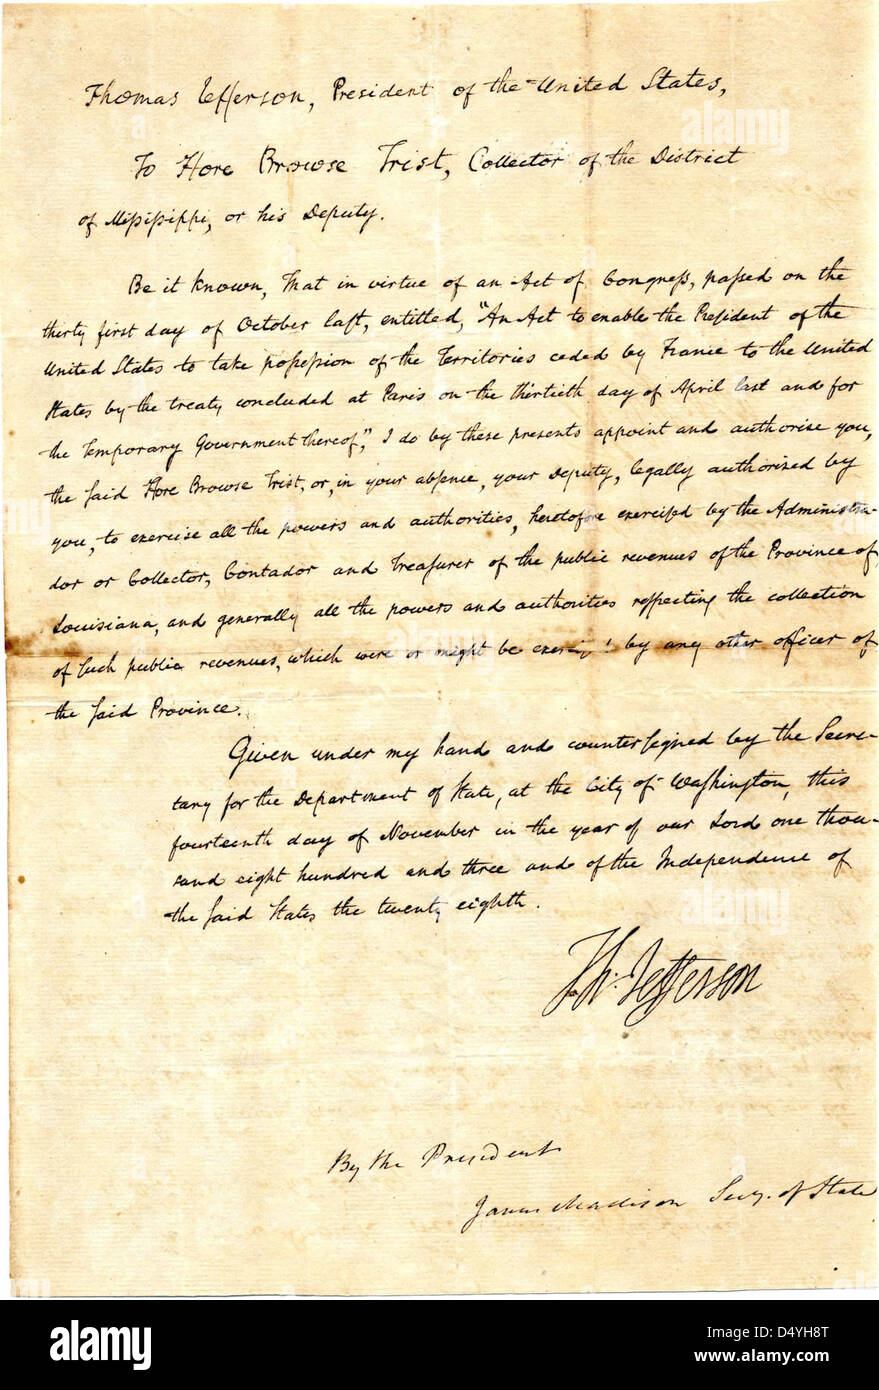 Thomas Jefferson, President of the United States,
To Hore Browse Trist, Collector of the District
of Mississippi, or his Deputy.
Be it known, That in virtue of an Act of Congress, passed on the
thirty first day of October last, entitled, "An Act to enable the President of the
United States to take possession of the Territories ceded by France to the United
States by the treaty concluded at Paris on the thirtieth day of April last and for
the Temporary Government thereof," I do by these presents appoint and authorise you,
the said Hore Browse Trist, or, in your absence, your Deputy, legally authorized by
you, to exercise all the powers and authorities, heretofore exercised by the Administra-
dor or Collector, Contador and Treasurer of the public revenues of the Province of
Louisiana, and generally all the powers and authorities respecting the collection
of such public revenues, which were or might be by any other officer of
the said Province.
Given under my hand and countersigned by the Secre-
tary for the Department of State, at the City of Washington, this
fourteenth day of November in the year of our Lord one thou-
sand eight hundred and three and of the Independence of
the said States the twenty eighth.
Th: Jefferson
By the President
James Madison Secy. of State
alamy
Image ID: D4YH8T
www.alamy.com